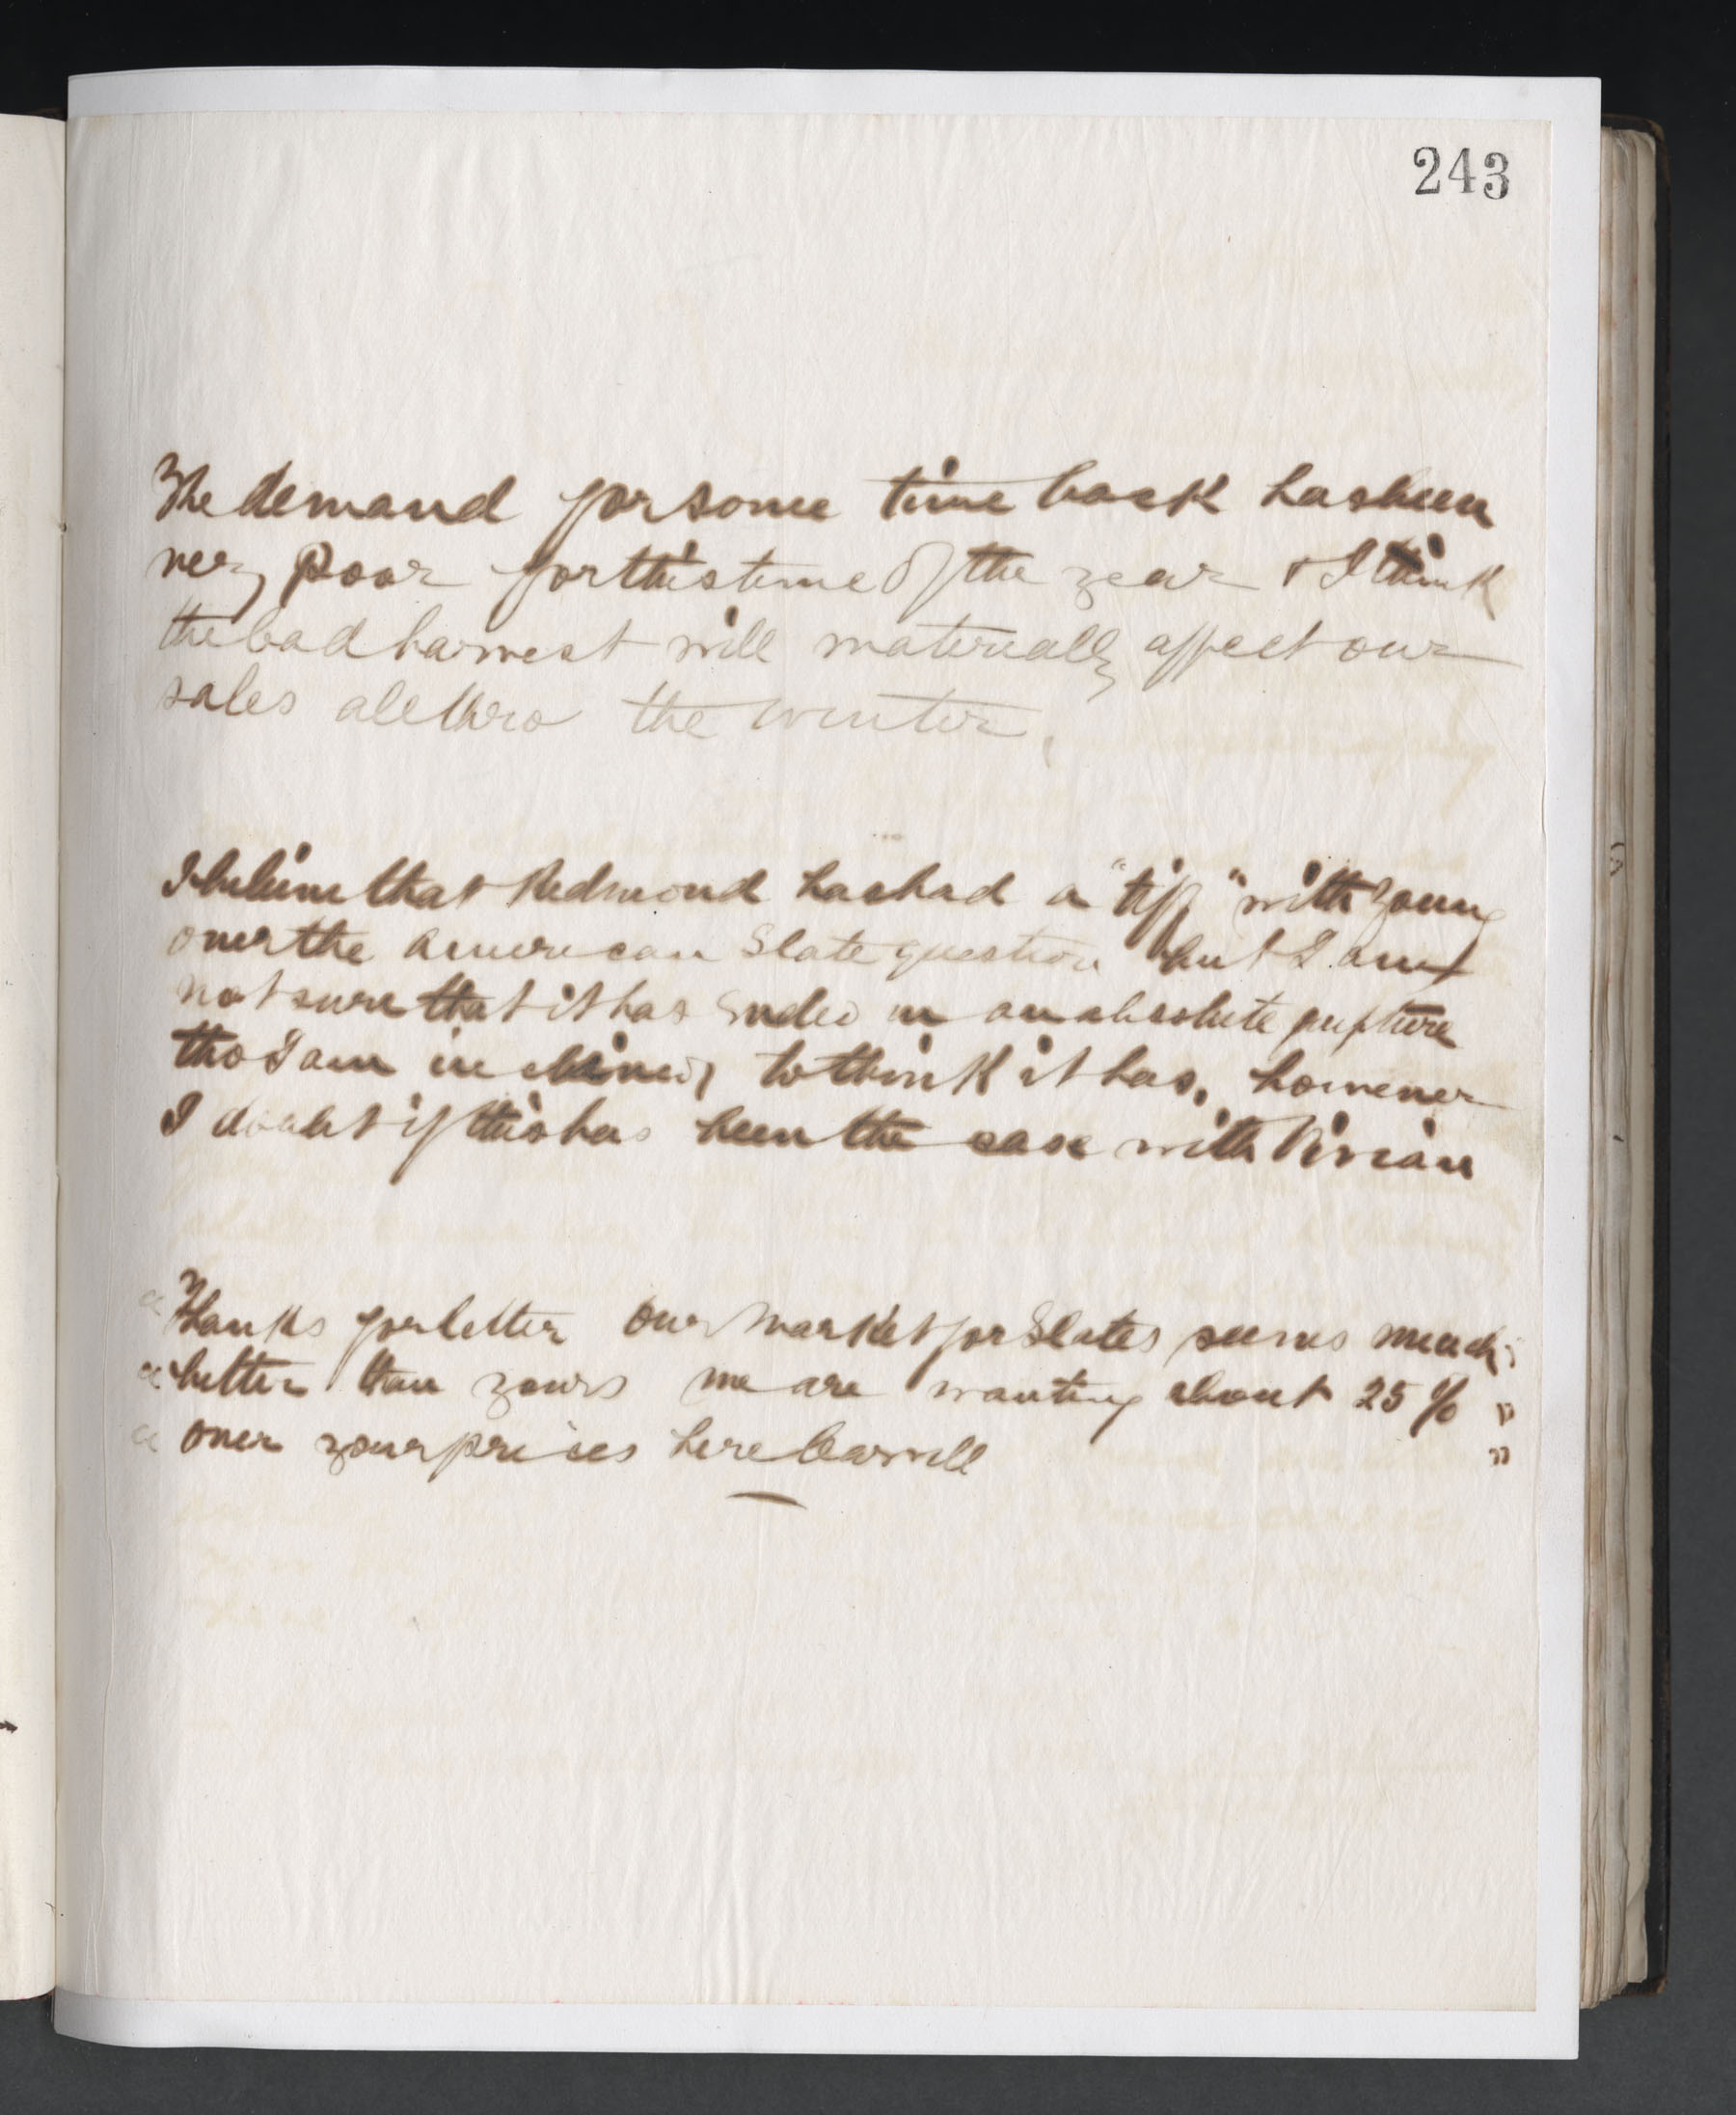 243
The demand for some time back has been
very poor for this time of the year & I think
the bad harvest will materially affect our
sales all thro the winter.
I believe that Redmond has had a "tiff" with Young
over the American Slate question but I am
not sure that it has ended in an absolute rupture
tho I am inclined to think it has, however
I doubt if this has been the case with Vivian
" Thanks for letter Our Market for Slates seems much "
" better than yours we are wanting about 25 % "
" over your prices here "